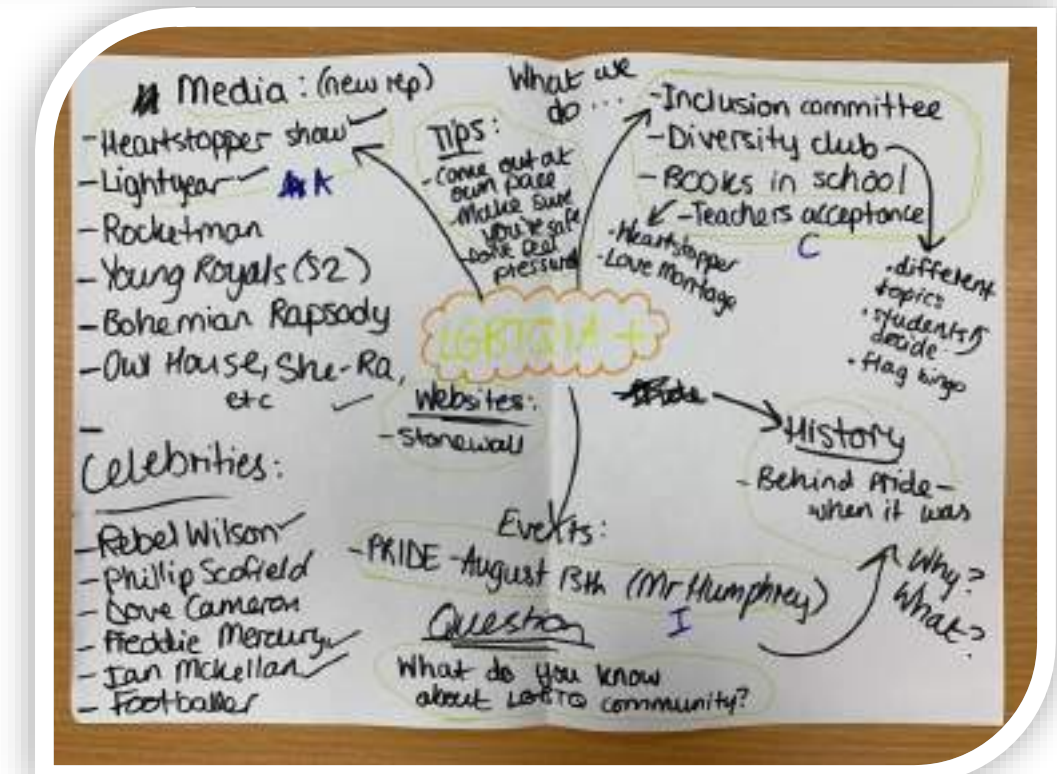 Media: (new rep)
- Heartstopper show
- Lightyear
A
- Rocketman
- Young Royals (S2)
- Bohemian Rapsody
- Owl House, She-Ra,
etc
Celebrities:
- Rebel Wilson
- Phillip Scofield
- Dove Cameron
- Freddie Mercury
- Ian Mckellan
- Footballer
Tips:
- come out at
own pace
- Make sure
you're safe
- don't feel
pressured
What we
do...
- Inclusion committee
- Diversity club
- Books in school
- Teachers acceptance
C
- Heartstopper
- Love Montage
• different
topics
• students
decide
• flag bingo
LGBTQIA+
Websites:
- Stonewall
History
- Behind Pride -
when it was
Why?
What?
Events:
- PRIDE - August 13th (Mr Humphrey)
I
Question
What do you know
about LGBTQ community?